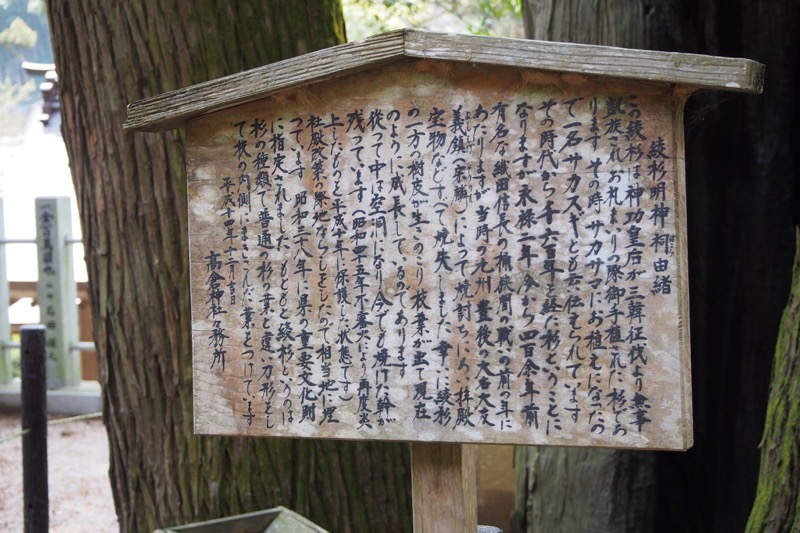 綾杉明神祠由緒
ほこら
この綾杉は神功皇后が三韓征伐より無事
凱旋されお礼まいりの際御手植された杉であ
ります その時、サカサマにお植えになったの
で一名サカスギとも云い伝えられています
その時代から千六百年を経た杉ということに
なりますが永禄二年 今から四百余年前
有名な織田信長の桶狭間の戦いの前の年に
あたりますが 当時の九州 豊後の大名大友
義鎮(宗麟)によって焼討ちにあい 拝殿
宝物などすべて焼失しました 幸に綾杉
の一方の樹皮が生きのこり 枝葉が出て現在
のように成長しているのであります
従って中は空洞になり今でも焼けた幹が
残っています (昭和四十五年不審火により再度炎
上したものを平成十年に保護した状態です)
社殿改築の際地ならしをしたので相当地に埋
っています 昭和三十八年に県の重要文化財
に指定されました もともと綾杉というのは
杉の種類で普通の杉の葉と違い刀形をし
て枝の内側にまきこんだ葉をつけています
平成十四年十二月吉日
高倉神社々務所